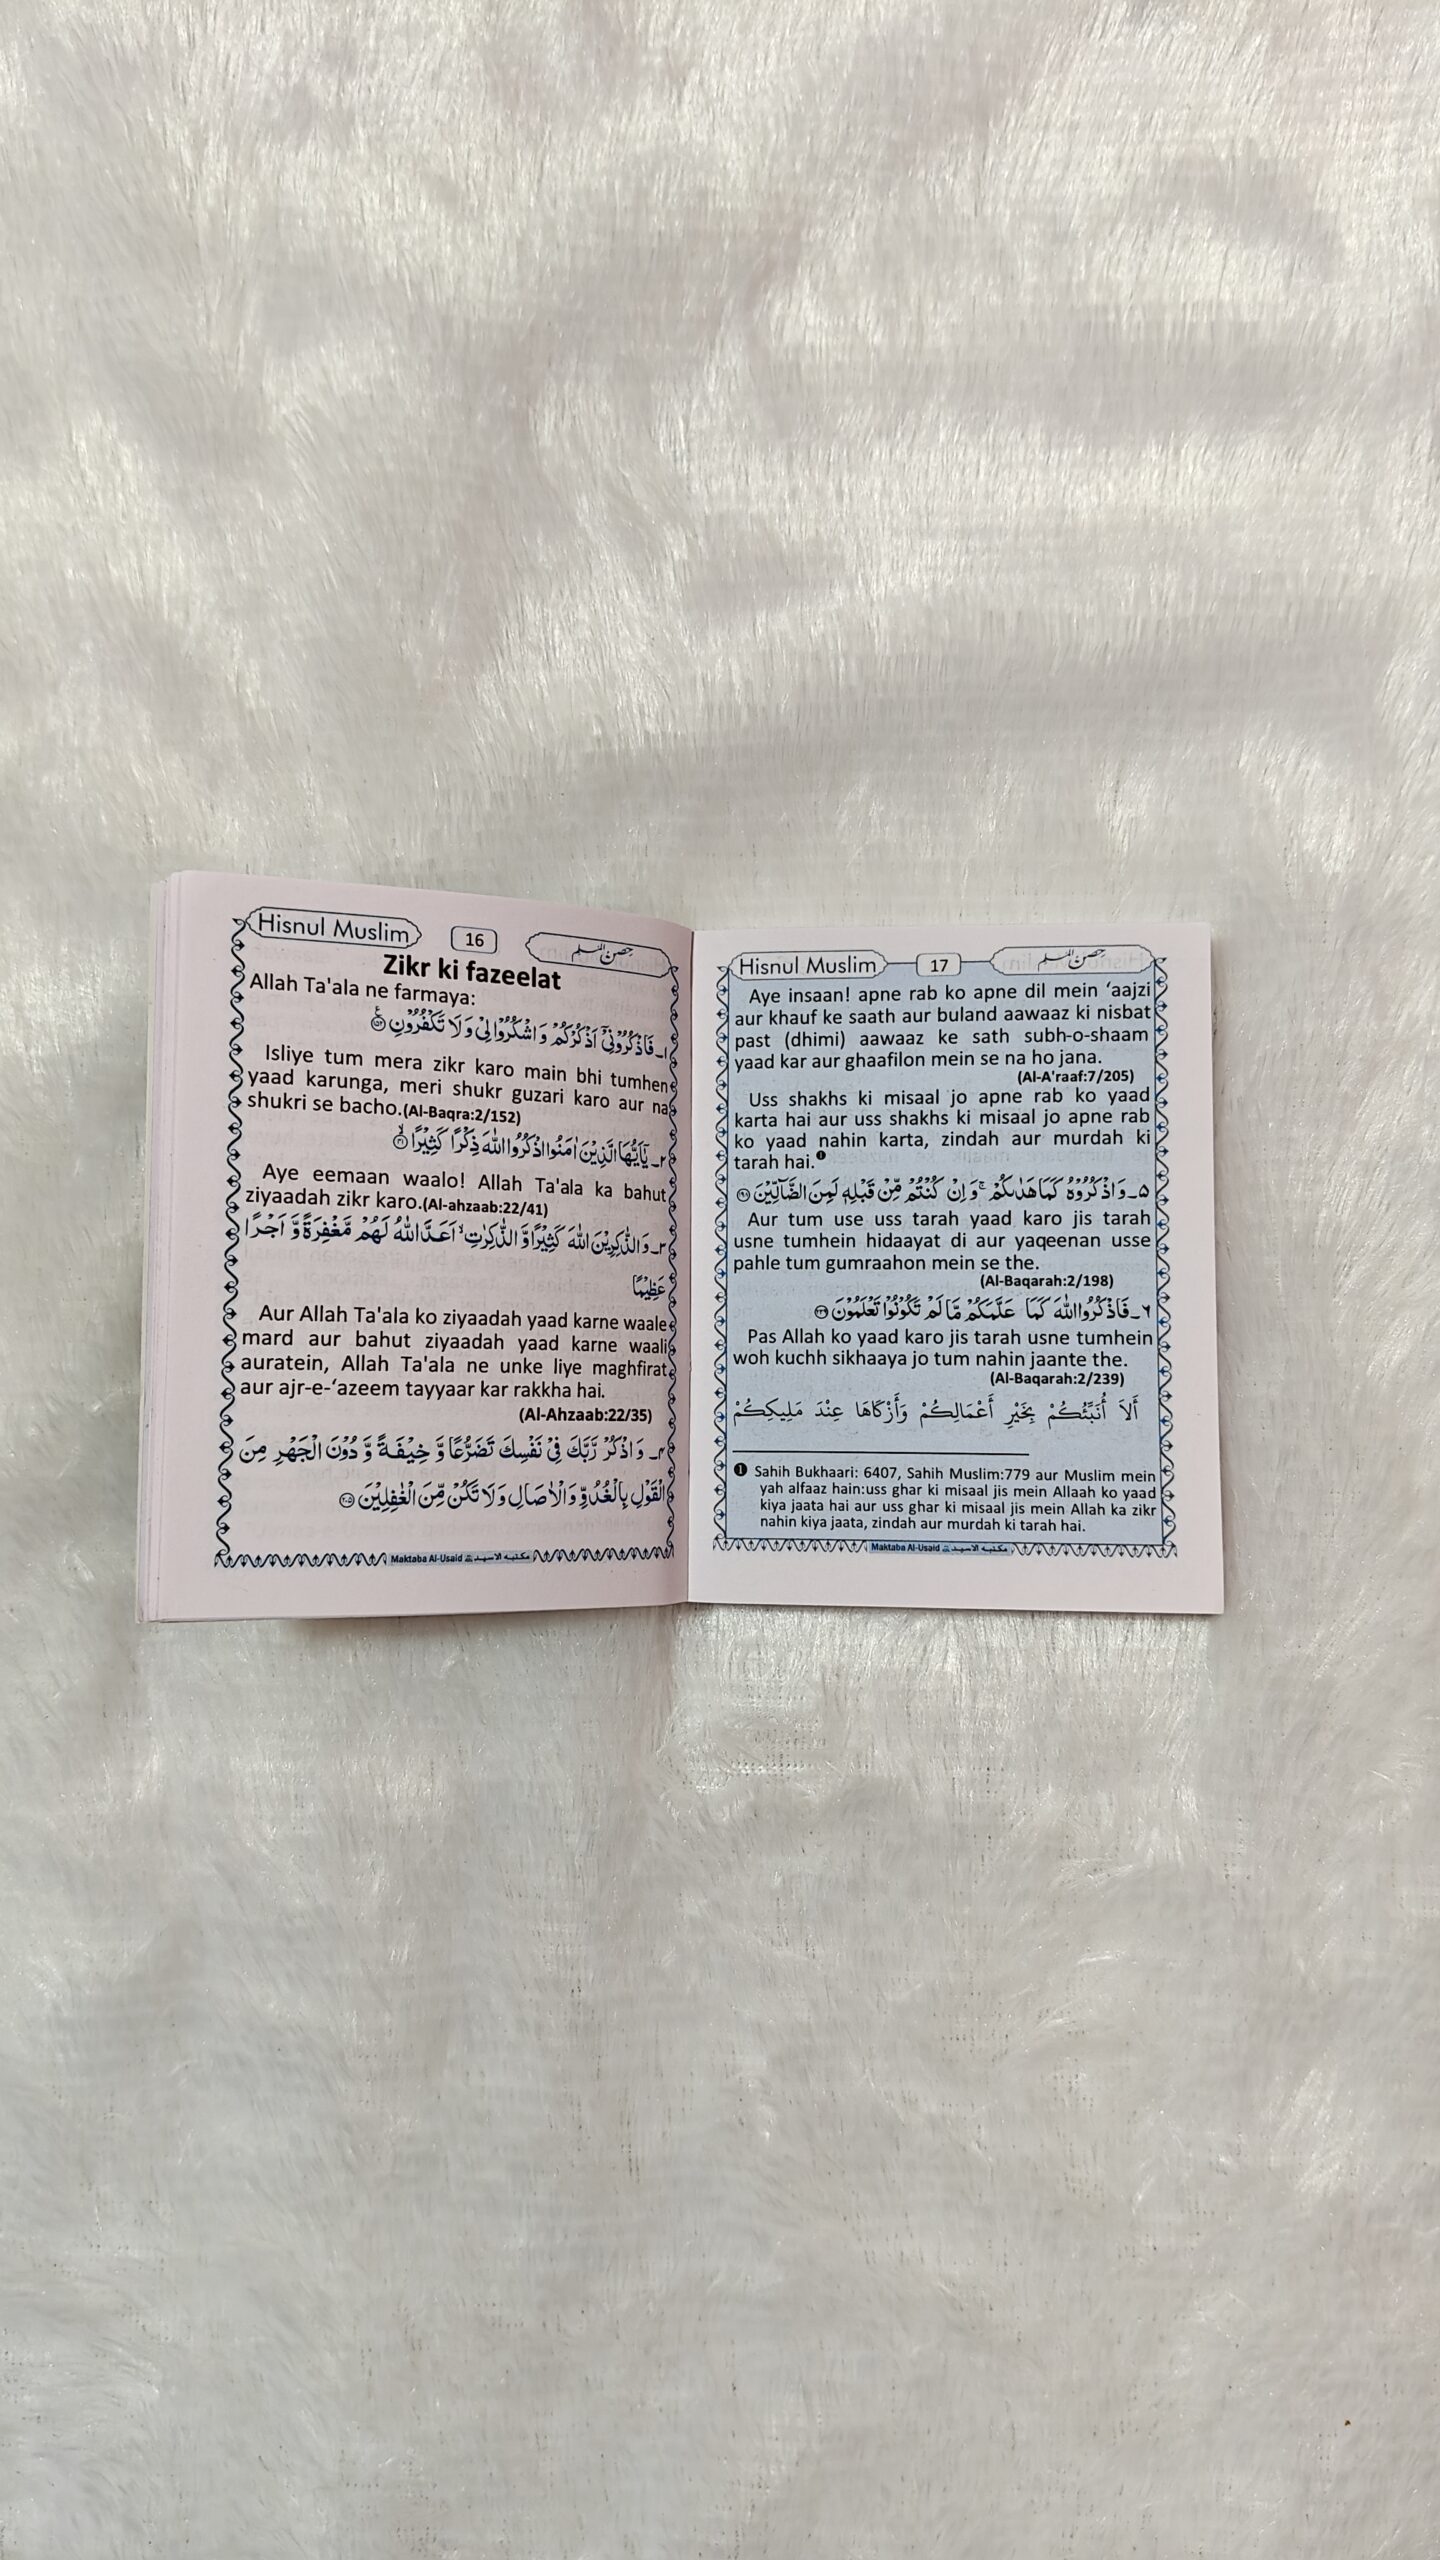 Hisnul Muslim
16
حصن المسلم
Zikr ki fazeelat
Allah Ta'ala ne farmaya:
١ـ فَاذْكُرُوْنِيْٓ اَذْكُرْكُمْ وَاشْكُرُوْا لِيْ وَلَا تَكْفُرُوْنِ ﴿١٥٢﴾
Isliye tum mera zikr karo main bhi tumhen
yaad karunga, meri shukr guzari karo aur na
shukri se bacho.(Al-Baqra:2/152)
٢ـ يٰٓاَيُّهَا الَّذِيْنَ اٰمَنُوا اذْكُرُوا اللّٰهَ ذِكْرًا كَثِيْرًا ﴿٤١﴾
Aye eemaan waalo! Allah Ta'ala ka bahut
ziyaadah zikr karo.(Al-ahzaab:22/41)
٣ـ وَالذّٰكِرِيْنَ اللّٰهَ كَثِيْرًا وَّ الذّٰكِرٰتِ ۙ اَعَدَّ اللّٰهُ لَهُمْ مَّغْفِرَةً وَّ اَجْرًا
عَظِيْمًا
Aur Allah Ta'ala ko ziyaadah yaad karne waale
mard aur bahut ziyaadah yaad karne waali
auratein, Allah Ta'ala ne unke liye maghfirat
aur ajr-e-‘azeem tayyaar kar rakkha hai.
(Al-Ahzaab:22/35)
٤ـ وَ اذْكُرْ رَّبَّكَ فِيْ نَفْسِكَ تَضَرُّعًا وَّ خِيْفَةً وَّ دُوْنَ الْجَهْرِ مِنَ
الْقَوْلِ بِالْغُدُوِّ وَالْاٰصَالِ وَلَا تَكُنْ مِّنَ الْغٰفِلِيْنَ ﴿٢٠٥﴾
Maktaba Al-Usaid مكتبه الاسيد
Hisnul Muslim
17
حصن المسلم
Aye insaan! apne rab ko apne dil mein ‘aajzi
aur khauf ke saath aur buland aawaaz ki nisbat
past (dhimi) aawaaz ke sath subh-o-shaam
yaad kar aur ghaafilon mein se na ho jana.
(Al-A'raaf:7/205)
Uss shakhs ki misaal jo apne rab ko yaad
karta hai aur uss shakhs ki misaal jo apne rab
ko yaad nahin karta, zindah aur murdah ki
tarah hai.❶
٥ـ وَاذْكُرُوْهُ كَمَا هَدٰىكُمْ ۚ وَاِنْ كُنْتُمْ مِّنْ قَبْلِهٖ لَمِنَ الضَّآلِّيْنَ ﴿١٩٨﴾
Aur tum use uss tarah yaad karo jis tarah
usne tumhein hidaayat di aur yaqeenan usse
pahle tum gumraahon mein se the.
(Al-Baqarah:2/198)
٦ـ فَاذْكُرُوا اللّٰهَ كَمَا عَلَّمَكُمْ مَّا لَمْ تَكُوْنُوْا تَعْلَمُوْنَ ﴿٢٣٩﴾
Pas Allah ko yaad karo jis tarah usne tumhein
woh kuchh sikhaaya jo tum nahin jaante the.
(Al-Baqarah:2/239)
أَلاَ أُنَبِّئُكُمْ بِخَيْرِ أَعْمَالِكُمْ وَأَزْكَاهَا عِنْدَ مَلِيكِكُمْ
❶ Sahih Bukhaari: 6407, Sahih Muslim:779 aur Muslim mein
yah alfaaz hain:uss ghar ki misaal jis mein Allaah ko yaad
kiya jaata hai aur uss ghar ki misaal jis mein Allah ka zikr
nahin kiya jaata, zindah aur murdah ki tarah hai.
Maktaba Al-Usaid مكتبه الاسيد